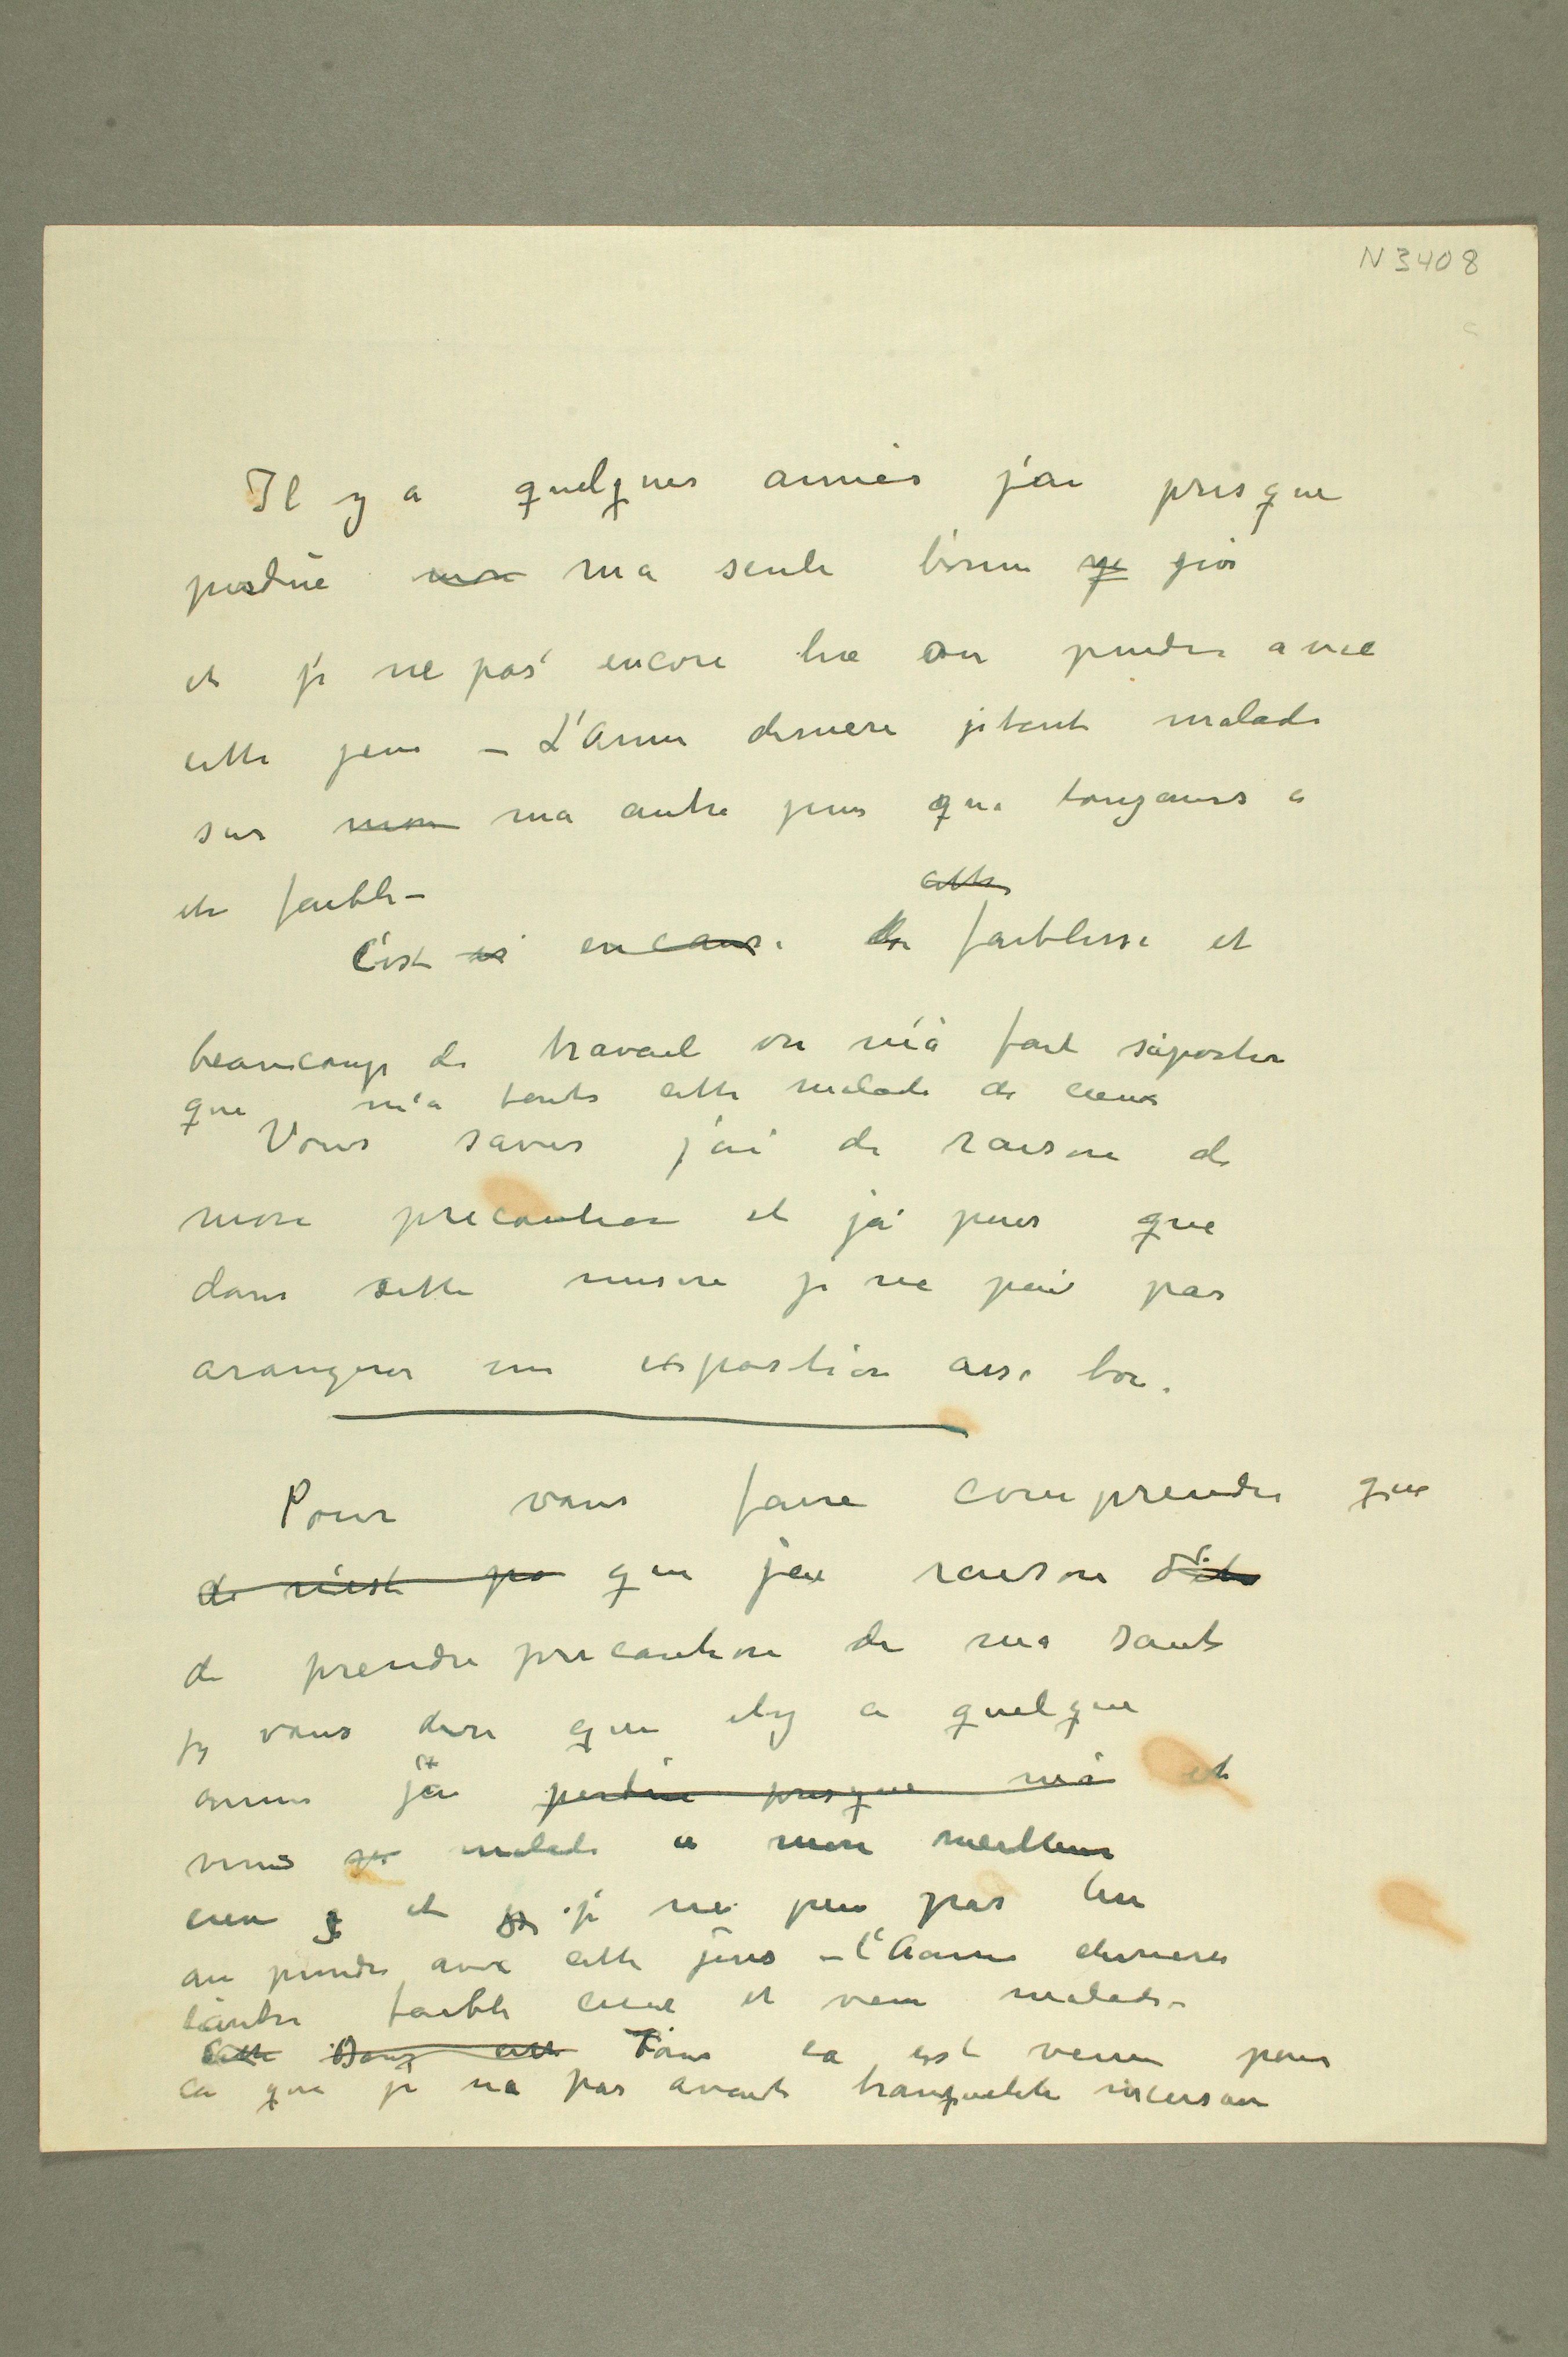 N 3408
Il y a quelques annés j'ai presque
perdue mon ma seule bonne ye
et je ne pas encore lire ou peindre avec
cette jeux – L'Anne derniere jetait malade
sur mon ma autre jeux que toujours a
ete faible –
cette
C'est encause de faiblesse et
beaucoup de travail on m'a fait
que m'a cette malade de
Vous saves j'ai de raison de
mon precaution et ja peur que
dans cette misere je ne pas
aranger un exposition asse bon.
Pour vous faire comprendre que
de n'est pa que jai raison d'ete
de prendre precaution de ma sante
je vous dire que il y a quelque
annes jai perdue presque et
malade a mon meilleur
et je ne peu pas lire
ou peindre avec cette jeus – l'Anne derniere
l'autre faible et malade –
Cette Dans cette Tous ca est venu pour
ca que je na pas avait tranquilite